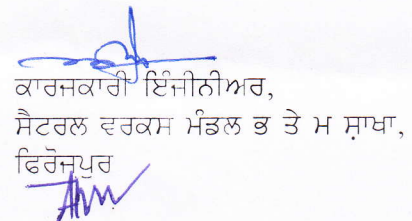 ਕਾਰਜਕਾਰੀ ਇੰਜੀਨੀਅਰ,
ਸੈਟਰਲ ਵਰਕਸ ਮੰਡਲ ਭ ਤੇ ਮ ਸ਼ਾਖਾ,
ਫਿਰੋਜਪੁਰ